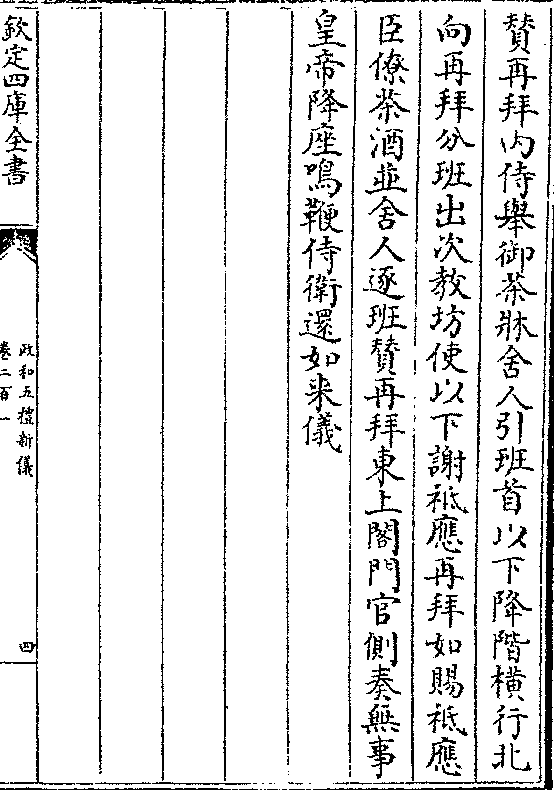 贊再拜内侍舉御茶牀舍人引班首以下降階横行北
向再拜分班出次教坊使以下謝祗應再拜如賜祗應
臣僚茶酒並舍人逐班贊再拜東上閤門官側奏無事
皇帝降座鳴鞭侍衛還如來儀
欽定四庫全書
政和五禮新儀
卷二百一
四